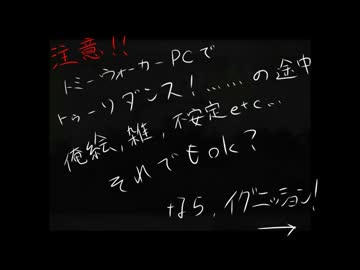 注意!!
トミーウォーカーPCで
トゥーリダンス!……の途中
俺絵,雑,不安定etc…
それでもok?
なら、イグニッション!
→